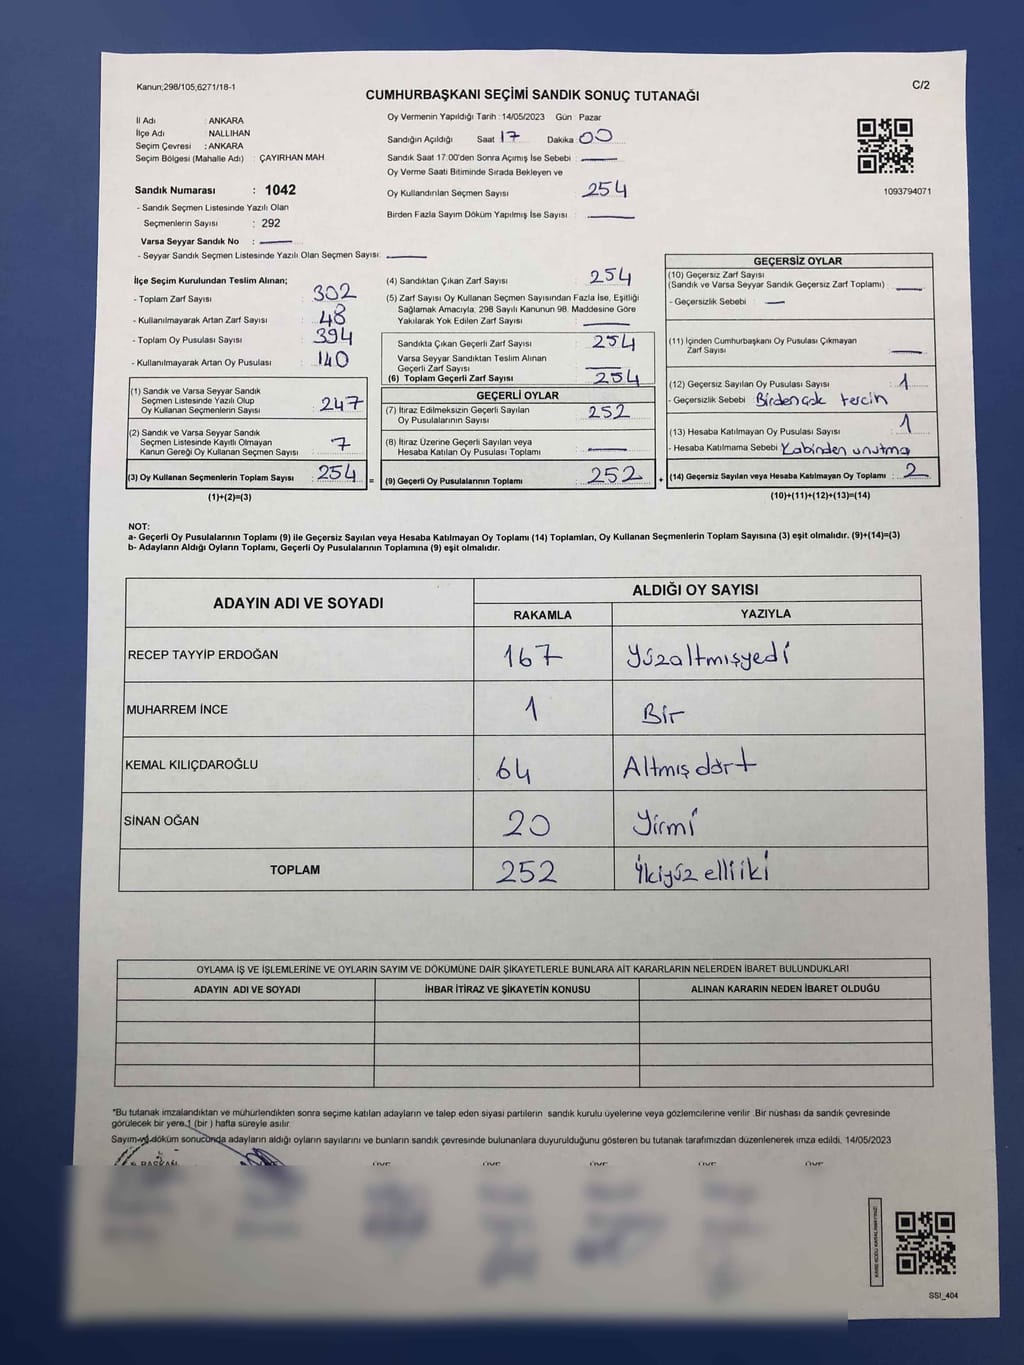 Kanun;298/105;6271/18-1
C/2
CUMHURBAŞKANI SEÇİMİ SANDIK SONUÇ TUTANAĞI
İl Adı : ANKARA
İlçe Adı : NALLIHAN
Seçim Çevresi : ANKARA
Seçim Bölgesi (Mahalle Adı) : ÇAYIRHAN MAH.
Sandık Numarası : 1042
- Sandık Seçmen Listesinde Yazılı Olan
Seçmenlerin Sayısı : 292
Varsa Seyyar Sandık No :
- Seyyar Sandık Seçmen Listesinde Yazılı Olan Seçmen Sayısı:
Oy Vermenin Yapıldığı Tarih : 14/05/2023 Gün : Pazar
Sandığın Açıldığı Saat 17 Dakika 00
Sandık Saat 17:00'den Sonra Açımış İse Sebebi :
Oy Verme Saati Bitiminde Sırada Bekleyen ve
Oy Kullandırılan Seçmen Sayısı : 254
Birden Fazla Sayım Döküm Yapılmış İse Sayısı :
1093794071
İlçe Seçim Kurulundan Teslim Alınan;
- Toplam Zarf Sayısı : 302
- Kullanılmayarak Artan Zarf Sayısı : 48
- Toplam Oy Pusulası Sayısı : 394
- Kullanılmayarak Artan Oy Pusulası : 140
(1) Sandık ve Varsa Seyyar Sandık
Seçmen Listesinde Yazılı Olup
Oy Kullanan Seçmenlerin Sayısı : 247
(2) Sandık ve Varsa Seyyar Sandık
Seçmen Listesinde Kayıtlı Olmayan
Kanun Gereği Oy Kullanan Seçmen Sayısı : 7
(3) Oy Kullanan Seçmenlerin Toplam Sayısı : 254 =
(1)+(2)=(3)
(4) Sandıktan Çıkan Zarf Sayısı : 254
(5) Zarf Sayısı Oy Kullanan Seçmen Sayısından Fazla İse, Eşitliği
Sağlamak Amacıyla; 298 Sayılı Kanunun 98. Maddesine Göre
Yakılarak Yok Edilen Zarf Sayısı :
Sandıkta Çıkan Geçerli Zarf Sayısı : 254
Varsa Seyyar Sandıktan Teslim Alınan
Geçerli Zarf Sayısı :
(6) Toplam Geçerli Zarf Sayısı : 254
GEÇERLİ OYLAR
(7) İtiraz Edilmeksizin Geçerli Sayılan
Oy Pusulasının Sayısı : 252
(8) İtiraz Üzerine Geçerli Sayılan veya
Hesaba Katılan Oy Pusulası Toplamı :
(9) Geçerli Oy Pusulalarının Toplamı : 252 +
GEÇERSİZ OYLAR
(10) Geçersiz Zarf Sayısı
(Sandık ve Varsa Seyyar Sandık Geçersiz Zarf Toplamı) :
- Geçersizlik Sebebi :
(11) İçinden Cumhurbaşkanı Oy Pusulası Çıkmayan
Zarf Sayısı :
(12) Geçersiz Sayılan Oy Pusulası Sayısı : 1
- Geçersizlik Sebebi : Birden çok tercih
(13) Hesaba Katılmayan Oy Pusulası Sayısı : 1
- Hesaba Katılmama Sebebi : Kabinden unutma
(14) Geçersiz Sayılan veya Hesaba Katılmayan Oy Toplamı : 2
(10)+(11)+(12)+(13)=(14)
NOT:
a- Geçerli Oy Pusulalarının Toplamı (9) ile Geçersiz Sayılan veya Hesaba Katılmayan Oy Toplamı (14) Toplamları, Oy Kullanan Seçmenlerin Toplam Sayısına (3) eşit olmalıdır. (9)+(14)=(3)
b- Adayların Aldığı Oyların Toplamı, Geçerli Oy Pusulalarının Toplamına (9) eşit olmalıdır.
ADAYIN ADI VE SOYADI ALDIĞI OY SAYISI
RAKAMLA YAZIYLA
RECEP TAYYİP ERDOĞAN 167 Yüzaltmışyedi
MUHARREM İNCE 1 Bir
KEMAL KILIÇDAROĞLU 64 Altmış dört
SİNAN OĞAN 20 Yirmi
TOPLAM 252 İkiyüz elliiki
OYLAMA İŞ VE İŞLEMLERİNE VE OYLARIN SAYIM VE DÖKÜMÜNE DAİR ŞİKAYETLERLE BUNLARA AİT KARARLARIN NELERDEN İBARET BULUNDUKLARI
ADAYIN ADI VE SOYADI İHBAR İTİRAZ VE ŞİKAYETİN KONUSU ALINAN KARARIN NEDEN İBARET OLDUĞU
*Bu tutanak imzalandıktan ve mühürlendikten sonra seçime katılan adayların ve talep eden siyasi partilerin sandık kurulu üyelerine veya gözlemcilerine verilir .Bir nüshası da sandık çevresinde
görülecek bir yere 1 (bir ) hafta süreyle asılır.
Sayım ve döküm sonucunda adayların aldığı oyların sayılarını ve bunların sandık çevresinde bulunanlara duyurulduğunu gösteren bu tutanak tarafımızdan düzenlenerek imza edildi. 14/05/2023
BAŞKAN ÜYE ÜYE ÜYE ÜYE ÜYE
SSI_404